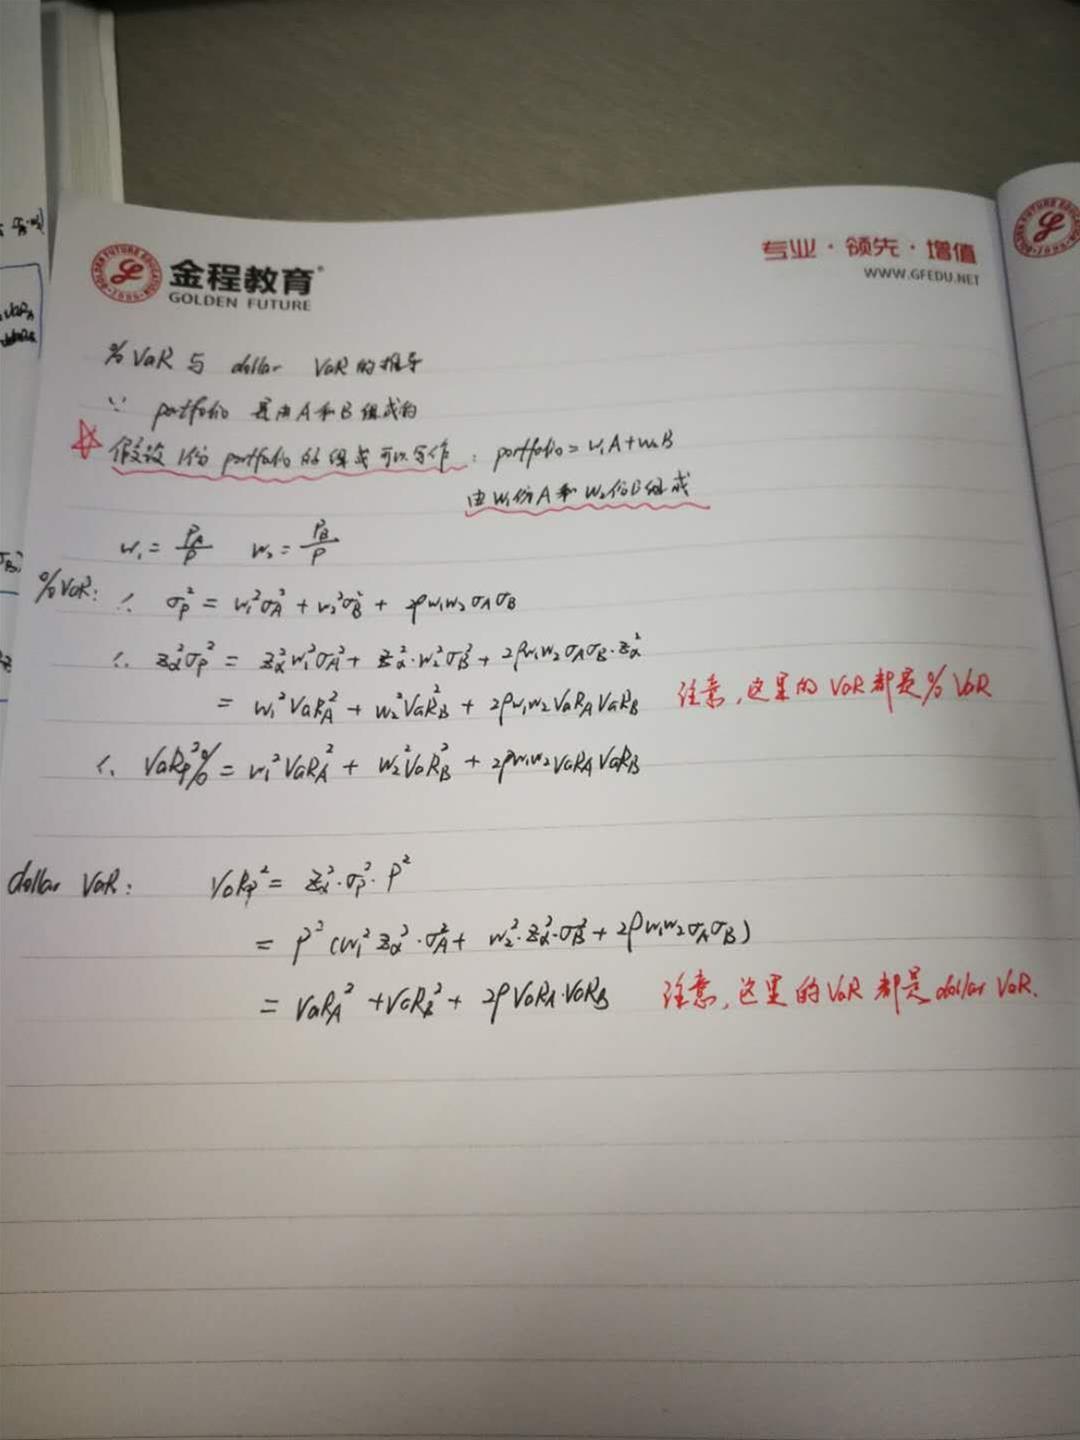 金程教育
GOLDEN FUTURE
专业·领先·增值
WWW.GFEDU.NET
%VaR 与 dollar VaR 的推导
∵ portfolio 是由A和B组成的
假设1份portfolio的组成可以写作: portfolio = w₁A + w₂B
由w₁份A和w₂份B组成
w₁ = P_A/P w₂ = P_B/P
%VaR: ∴ σ_P² = w₁²σ_A² + w₂²σ_B² + 2ρw₁w₂σ_Aσ_B
∴ z_α²σ_P² = z_α²w₁²σ_A² + z_α²·w₂²σ_B² + 2ρw₁w₂σ_Aσ_B·z_α²
= w₁²VaR_A² + w₂²VaR_B² + 2ρw₁w₂VaR_AVaR_B 注意,这里的VaR都是%VaR
∴ VaR_P²% = w₁²VaR_A² + w₂²VaR_B² + 2ρw₁w₂VaR_AVaR_B
dollar VaR: VaR_P² = z_α²·σ_P²·P²
= P²(w₁²z_α²·σ_A² + w₂²·z_α²·σ_B² + 2ρw₁w₂σ_Aσ_B)
= VaR_A² + VaR_B² + 2ρVaR_A·VaR_B 注意,这里的VaR都是dollar VaR.